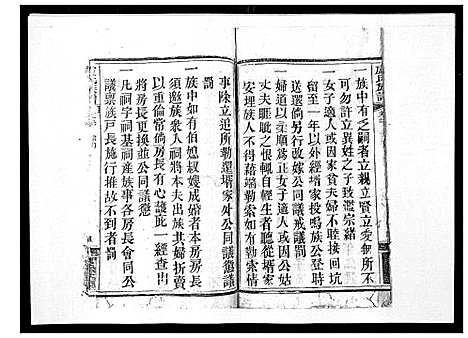 一族中有乏嗣者立親立賢立愛俱所不
可勿許立異姓之子致濫宗緒
一女子適人或因家貧夫婦不睦接回坑
留至一年以外經壻家投鳴族公登時
送還倘另行改嫁公同議戒議罰
一婦道以柔順爲正女子適人或因公姑
丈夫眦睚之恨輒自輕生者聽從壻家
安埋族人不得藉端勒索如有勒索情
事除立追所勒還壻家外公同議懲議
罰
一族中如有伯媳叔嫂成婚者本房房長
須邀族衆人祠將本夫出族其婦折賣
以重倫常倘房長有心護庇一經查出
將房長更換並公同議懲
一凡祠宇祠基祠產族事各房長會同公
議稟族戶長施行推故不到者罰